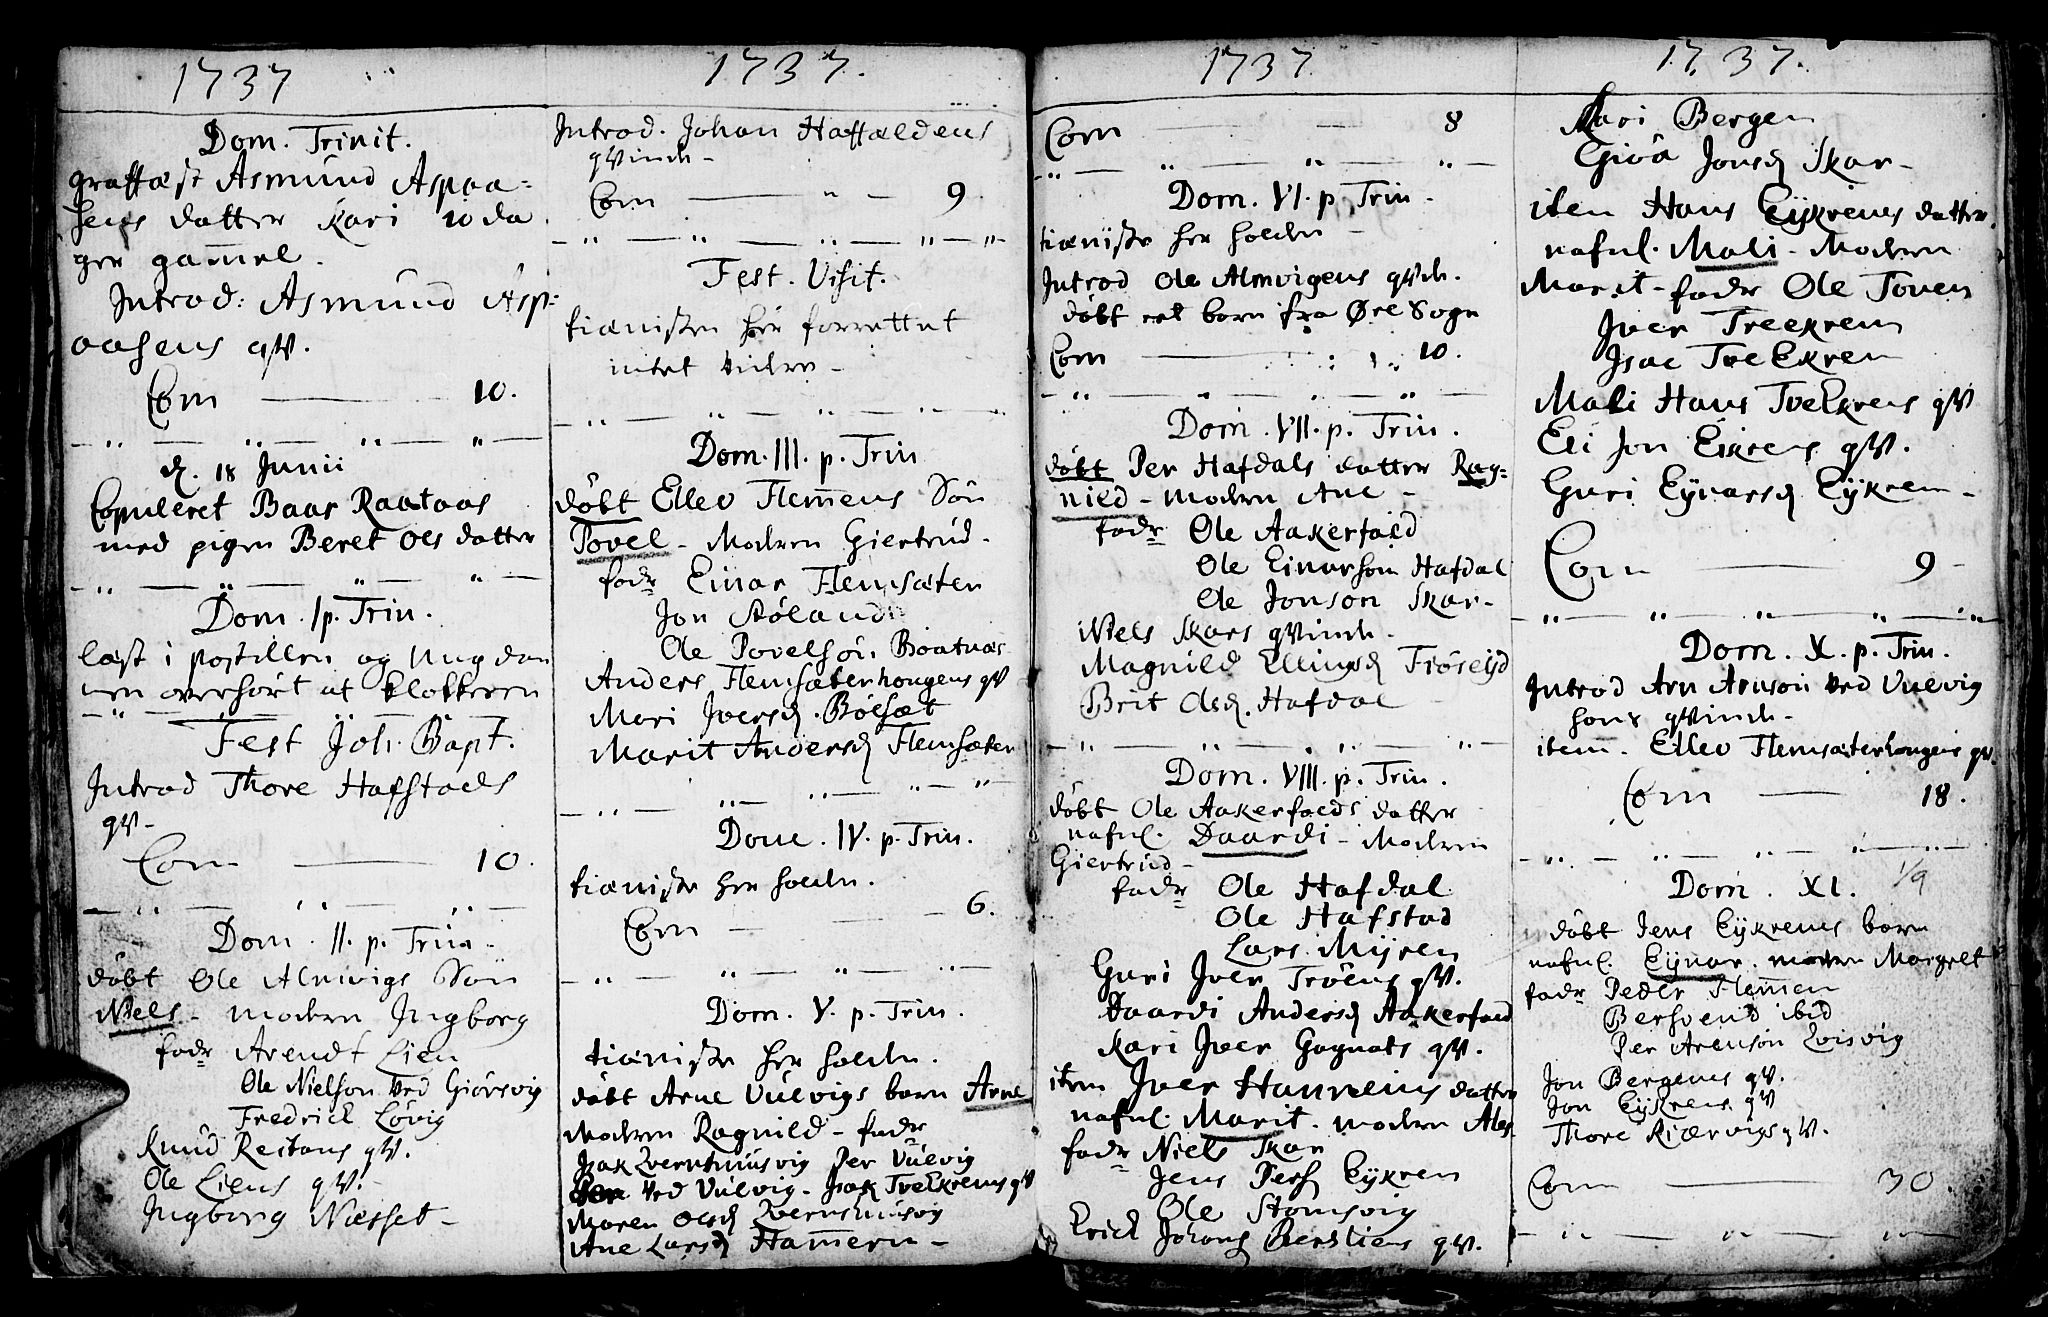 1737
Dom. Trinit.
graffæst Asmund Aspaa-
sens datter Kari 10 da
ger gam̅el.
Introd: Asmund Asp-
aasens qv.
Com 10.
d. 18 Junii
Copuleret Baar Raataas
med pigen Beret Ols datter
Dom. I p. Trin.
læst i postillen og Ungdom
men overhørt at klokkeren
Fest Joh. Bapt.
Introd Thore Hafstads
qv-
Com 10.
Dom. II. p. Trin.
døbt Ole Almvigs Søn
Niels - Modren Ingborg
fadr Arendt Lien
Ole Nielson ved Giørsvig
Fredrick Løvig
Knud Reitans qv.
Ole Liens qv.
Ingborg Næsset-
1737.
Introd. Johan Haffældens
qvinde-
Com 9.
Fest. Visit.
tieniste her forrettet
intet videre-
Dom. III. p. Trin
døbt Ellev Flem̅ens Søn
Povel - Modren Giertrud-
fadr Einar Flemsæter
Jon Støland
Ole Povelsøn Boatnæs
Anders Flemsæterhougens qv
Mari Iversd. Bølsæt
Marit Andersd Flemsæter
Dom. IV. p. Trin.
tieniste her holden.
Com 6.
Dom. V. p. Trin.
tieniste her holden.
døbt Arne Vulvigs barn Arne
Modren Ragnild- fadr
Isak Qvernhusvig Per Vulvig
ved Vulvig- Isak TveEkrens qv
Maren Olsd Qvernhusvig
Ane Larsd Ham̅ern-
1737
Com 8
Dom. VI. p. Trin-
tieniste her holden-
Introd Ole Almvigens qvde.
døbt eet barn fra Øre Sogn
Com 10.
Dom. VII. p. Trin.
døbt Per Hafdals datter Rag-
nied- Modren Ane-
fadr Ole Aakerfald
Ole Einarson Hafdal
Ole Jonson Skar-
Niels Skars qvinde-
Magnild Ellingsd Frøseyd
Brit Olsd. Hafdal
Dom. VIII. p. Trin.
døbt Ole Aakerfalds datter
nafnl. Daardi- Modren
Giertrud-
fadr Ole Hafdal
Ole Hafstad
Lars Myren
Guri Iver Trøens qv.
Daardi Andersd Aakerfald
Kari Iver Gagnats qv.
item Iver datter
nafnl. Marit. Modren Ales
fadr Niels Skar
Jens Pers Eykren
Ole Stomsvig
Erick Johans qv.
17.37.
Kari Bergem
Giøa Jonsd Skar-
item Hans Eykrens datter
nafnl. Mali- Modren
Marit- fadr Ole Toven
Iver Treekrem
Isac TveEkren
Mali Hans TveEkrens qv
Eli Jon Eikrens qv.
Guri Eynarsd Eykrem-
Com 9-
Dom. X. p. Trin.
Introd Arn Arnson ved Vulvig
hans qvinde-
item- Ellev Flemsæterhougens qv.
Com 18.
Dom. XI. 1/9
døbt Jens Eykrens barn
nafnl. Eynar. modren Margret
fadr Peder Flem̅en
Bersvend ibid
Per Arenson Qvisvig
Jon Bergems qv.
Jon Eykrens qv
Thore Kiærvigs qv.
Com 30.